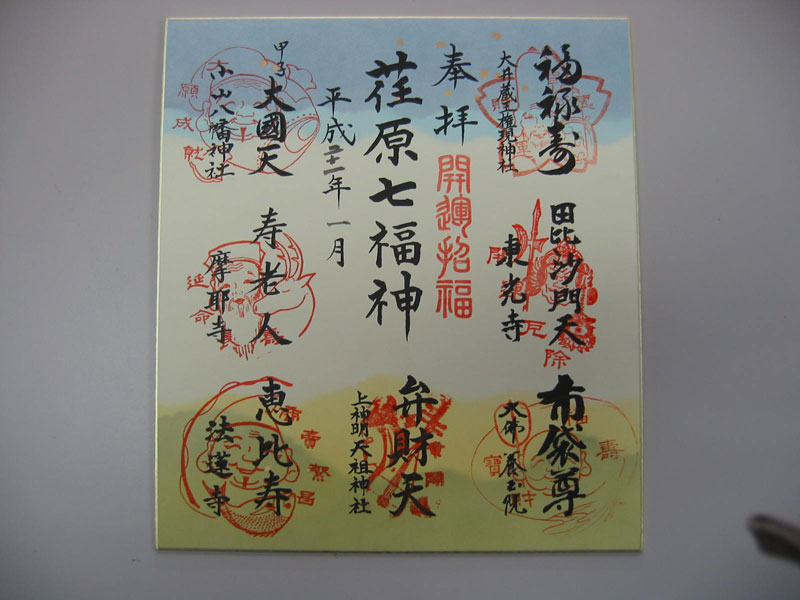 福禄寿
大井蔵王権現神社
毘沙門天
東光寺
布袋尊
大佛 養玉院
奉拝
開運招福
荏原七福神
平成二十一年一月
弁財天
上神明天祖神社
甲子 大國天
小山八幡神社
願成就
寿老人
摩耶寺
延命
恵比寿
法蓮寺